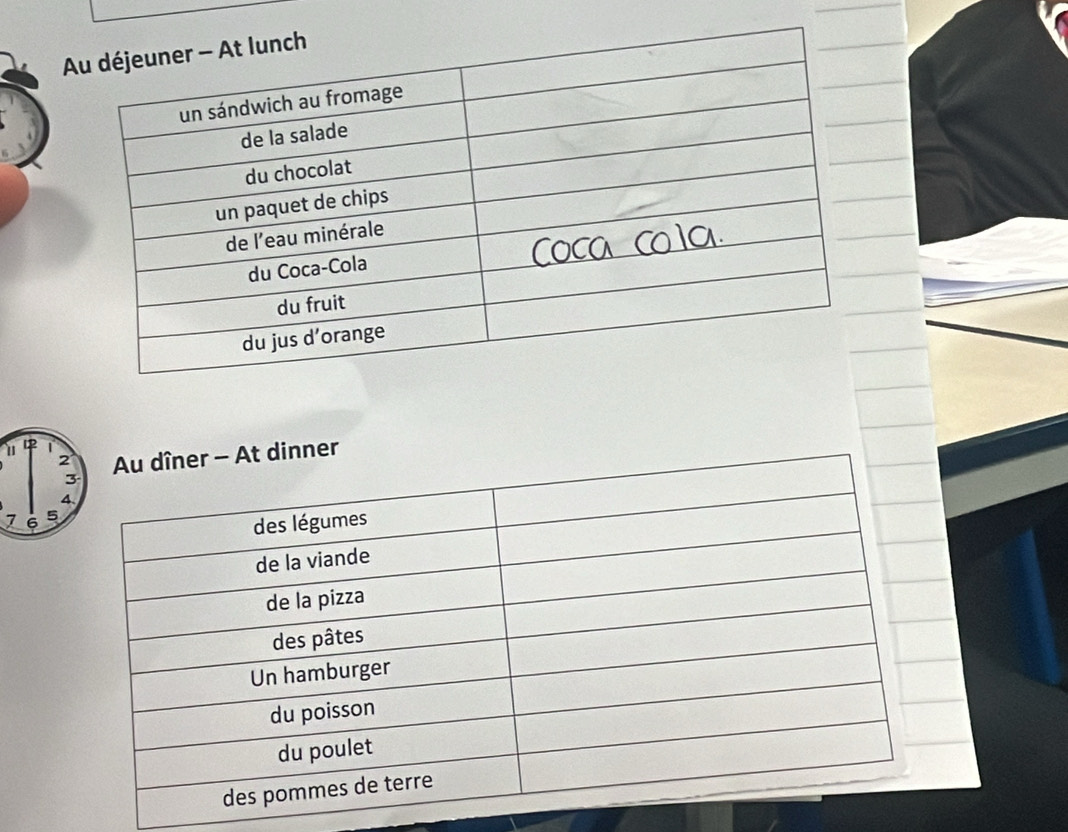 Au déjeuner – At lunch
un sándwich au fromage
de la salade
du chocolat
un paquet de chips
de l'eau minérale
du Coca-Cola coca cola.
du fruit
du jus d'orange
11 12 1
2
3
4
7 6 5
Au dîner – At dinner
des légumes
de la viande
de la pizza
des pâtes
Un hamburger
du poisson
du poulet
des pommes de terre